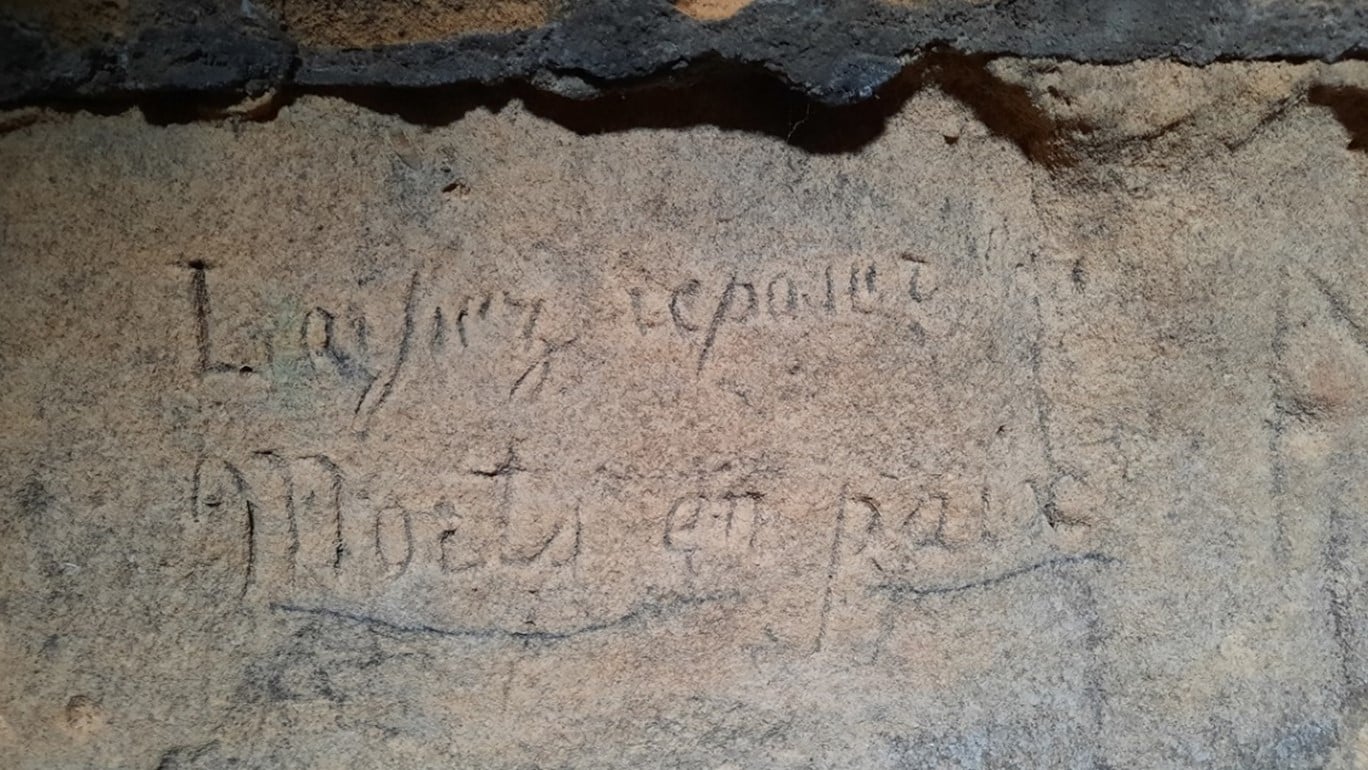 Laiſsez reposer
Morts en paix